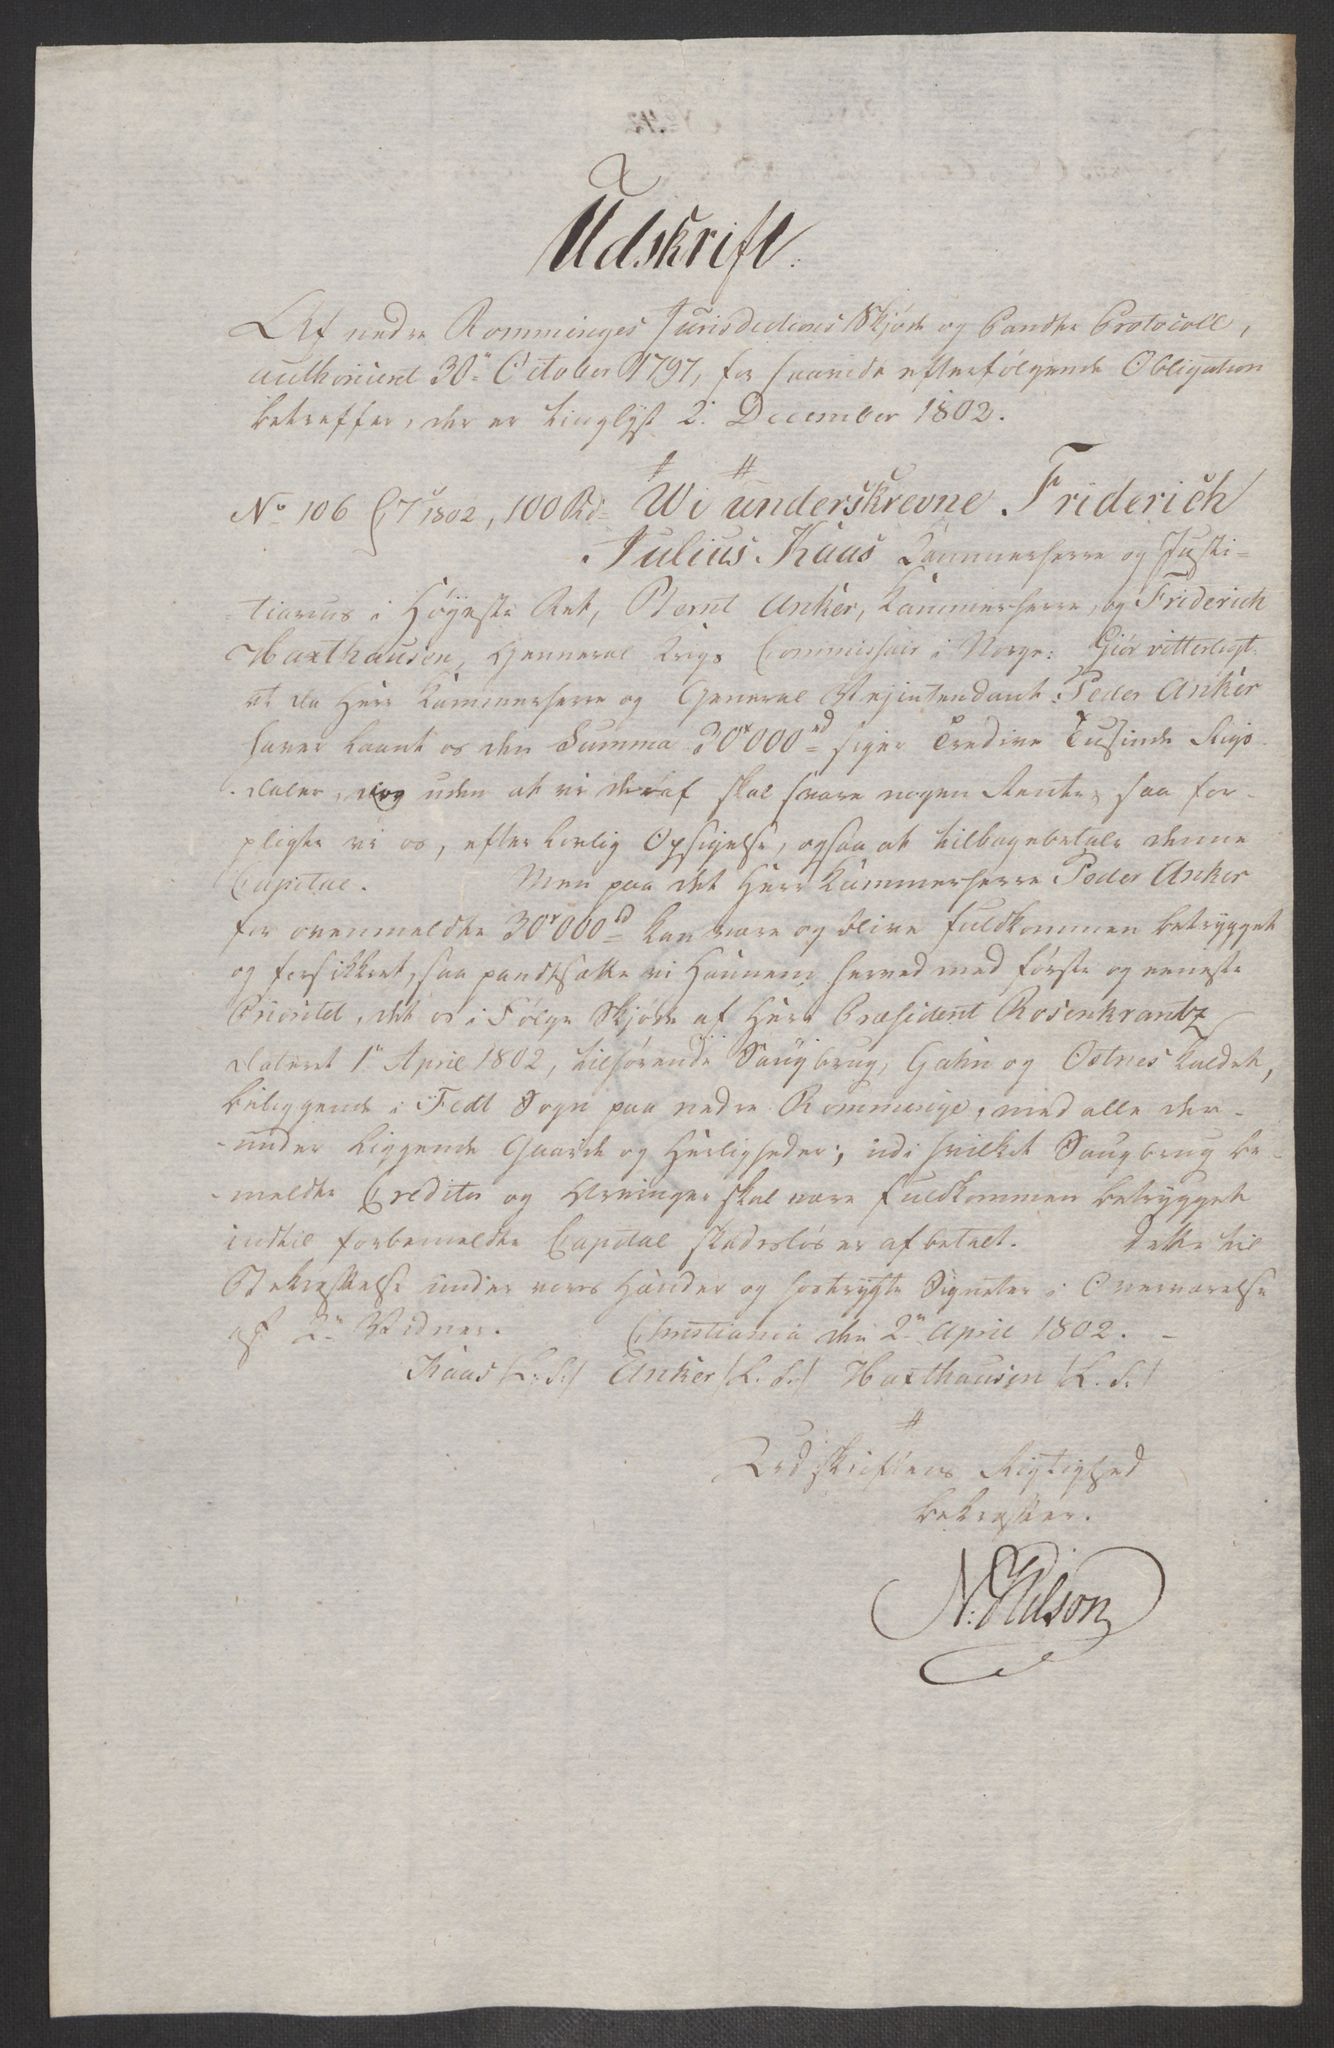 Udskrift.
Af nedre Rommeriges Jurisdictions Skjøde og Pandte Protocoll,
authoriseret 30te October 1797, for saavide efterfølgende Obligation
betreffer, der er tinglyst 2. December 1802.
No 106 C. 7 1802, 100 Rd. Wi underskrevne Friderich
Julius Kaas Kammerherre og Justi-
-tiarius i Høyeste Ret, Bernt Anker, Kammerherre, og Friderich
Haxthausen, General Krigs Commissair i Norge: Giør vitterligt:
at da Herr Kammerherre og General Vejintendant Peder Anker
haver laant os den Summa 30000rd siger Tredive Tusinde Rigs
daler, dog uden at vi deraf skal svare nogen Rente, saa for-
pligte vi os, efter lovlig Opsigelse, ogsaa at tilbagebetale denne
Capital. Men paa det Herr Kammerherre Peder Anker
for ovenmeldte 30000rd kan være og blive fuldkommen betrygget
og forsikkret, saa pandtsætte vi Hannem herved med første og eeneste
Prioritet, det os i Følge Skjøde af Herr Præsident Rosenkrantz
dateret 1te April 1802, tilhørende Saugbrug, Gahn og Ostnes kaldet,
beliggende i Fedt Sogn paa nedre Rommerige, med alle der-
-under liggende Gaarde og Herligheder; udi hvilket Saugbrug be-
-meldte Creditor og Arvinger skal være fuldkommen betrygget
indtil forbemeldte Capital skadesløs er afbetalt. Dette til
Bekræftelse under vores Hænder og hostrygte Signeter i Overværelse
af 2de Vidner. Christiania den 2den April 1802.
Kaas /L.S./ Anker /L.S./ Haxthausen /L.S./
Udskriftens Rigtighed
bekræfter.
N: Nilson